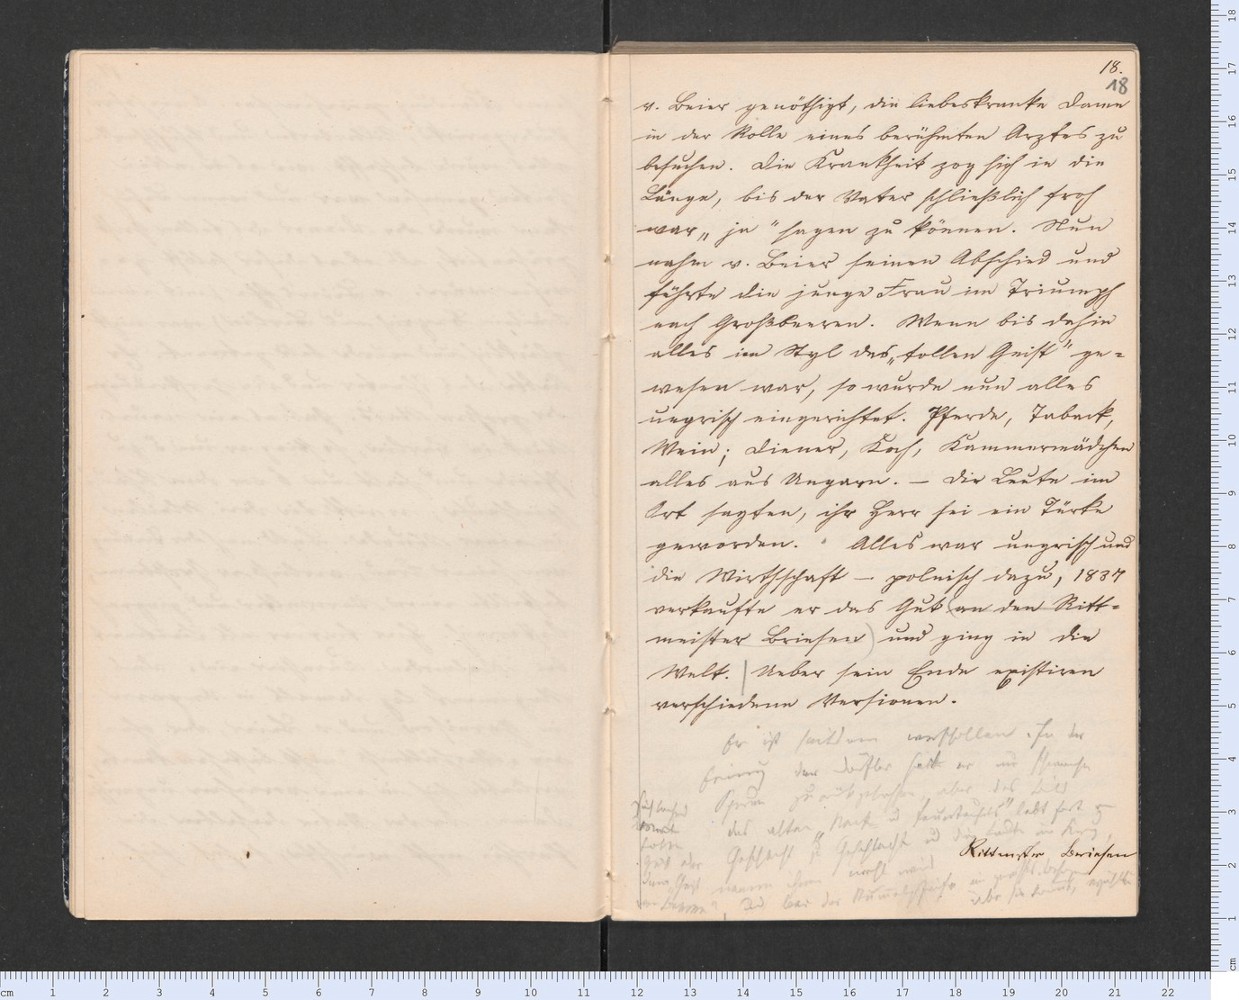 18.
18
v. Beier genöthigt, die liebeskranke Dame
in der Rolle eines berühmten Arztes zu
besuchen. Die Krankheit zog sich in die
Länge, bis der Vater schließlich froh
war „ja" sagen zu können. Nun
nahm v. Beier seinen Abschied und
führte die junge Frau im Triumph
nach Großbeeren. Wenn bis dahin
alles im Styl des „tollen Geist" ge-
wesen war, so wurde nun alles
ungrisch eingerichtet. Pferde, Taback,
Wein; Diener, Koch, Kammermädchen
alles aus Ungarn. – Die Leute im
Ort sagten, ihr Herr sei ein Türke
geworden. Alles war ungrisch und
die Wirthschaft – polnisch dazu, 1837
verkaufte er das Gut (an den Ritt-
meister Briesen) und ging in die
Welt. | Ueber sein Ende existiren
verschiedene Versionen.
Er ist seitdem verschollen. In der
der Dörfler hat er
zurückgelassen, aber das Bild
des alten
Geschlecht
Rittmstr Briesen